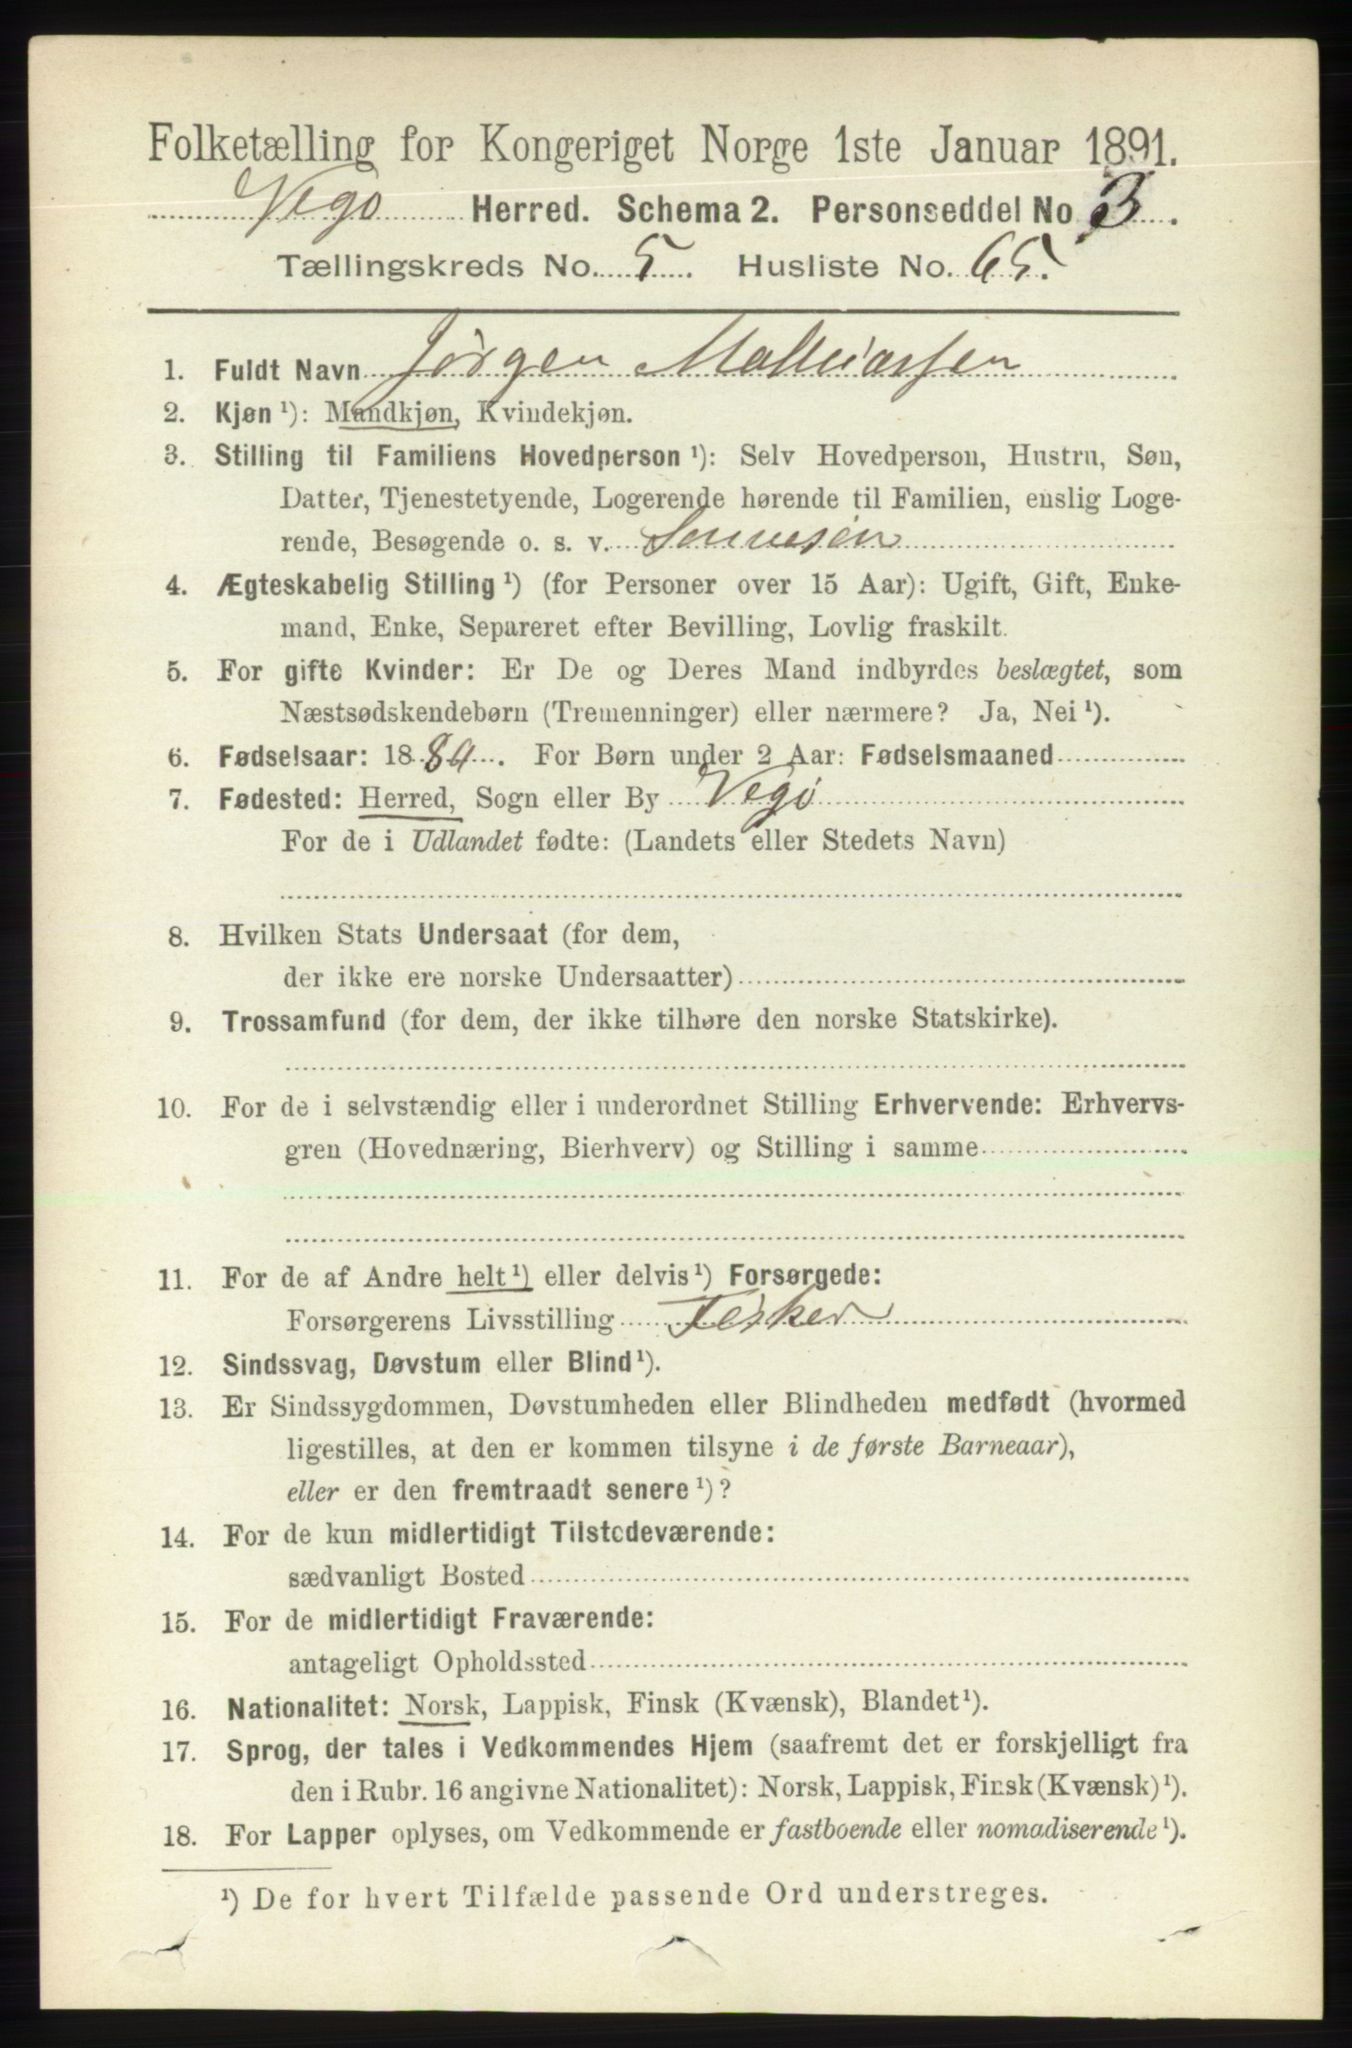 Folketælling for Kongeriget Norge 1ste Januar 1891.
Vegø Herred. Schema 2. Personseddel No 3.
Tællingskreds No. 5. Husliste No. 65.
1. Fuldt Navn Jørgen Mathiassen
2. Kjøn ¹): Mandkjøn, Kvindekjøn.
3. Stilling til Familiens Hovedperson ¹): Selv Hovedperson, Hustru, Søn,
Datter, Tjenestetyende, Logerende hørende til Familien, enslig Loge-
rende, Besøgende o. s. v. Sønnesøn
4. Ægteskabelig Stilling ¹) (for Personer over 15 Aar): Ugift, Gift, Enke-
mand, Enke, Separeret efter Bevilling, Lovlig fraskilt.
5. For gifte Kvinder: Er De og Deres Mand indbyrdes beslægtet, som
Næstsødskendebørn (Tremenninger) eller nærmere? Ja, Nei ¹).
6. Fødselsaar: 1884. For Børn under 2 Aar: Fødselsmaaned
7. Fødested: Herred, Sogn eller By Vegø
For de i Udlandet fødte: (Landets eller Stedets Navn)
8. Hvilken Stats Undersaat (for dem,
der ikke ere norske Undersaatter)
9. Trossamfund (for dem, der ikke tilhøre den norske Statskirke).
10. For de i selvstændig eller i underordnet Stilling Erhvervende: Erhvervs-
gren (Hovednæring, Bierhverv) og Stilling i samme
11. For de af Andre helt ¹) eller delvis ¹) Forsørgede:
Forsørgerens Livsstilling Fisker
12. Sindssvag, Døvstum eller Blind ¹).
13. Er Sindssygdommen, Døvstumheden eller Blindheden medfødt (hvormed
ligestilles, at den er kommen tilsyne i de første Barneaar),
eller er den fremtraadt senere ¹)?
14. For de kun midlertidigt Tilstedeværende:
sædvanligt Bosted
15. For de midlertidigt Fraværende:
antageligt Opholdssted
16. Nationalitet: Norsk, Lappisk, Finsk (Kvænsk), Blandet ¹).
17. Sprog, der tales i Vedkommendes Hjem (saafremt det er forskjelligt fra
den i Rubr. 16 angivne Nationalitet): Norsk, Lappisk, Finsk (Kvænsk) ¹).
18. For Lapper oplyses, om Vedkommende er fastboende eller nomadiserende ¹).
¹) De for hvert Tilfælde passende Ord understreges.